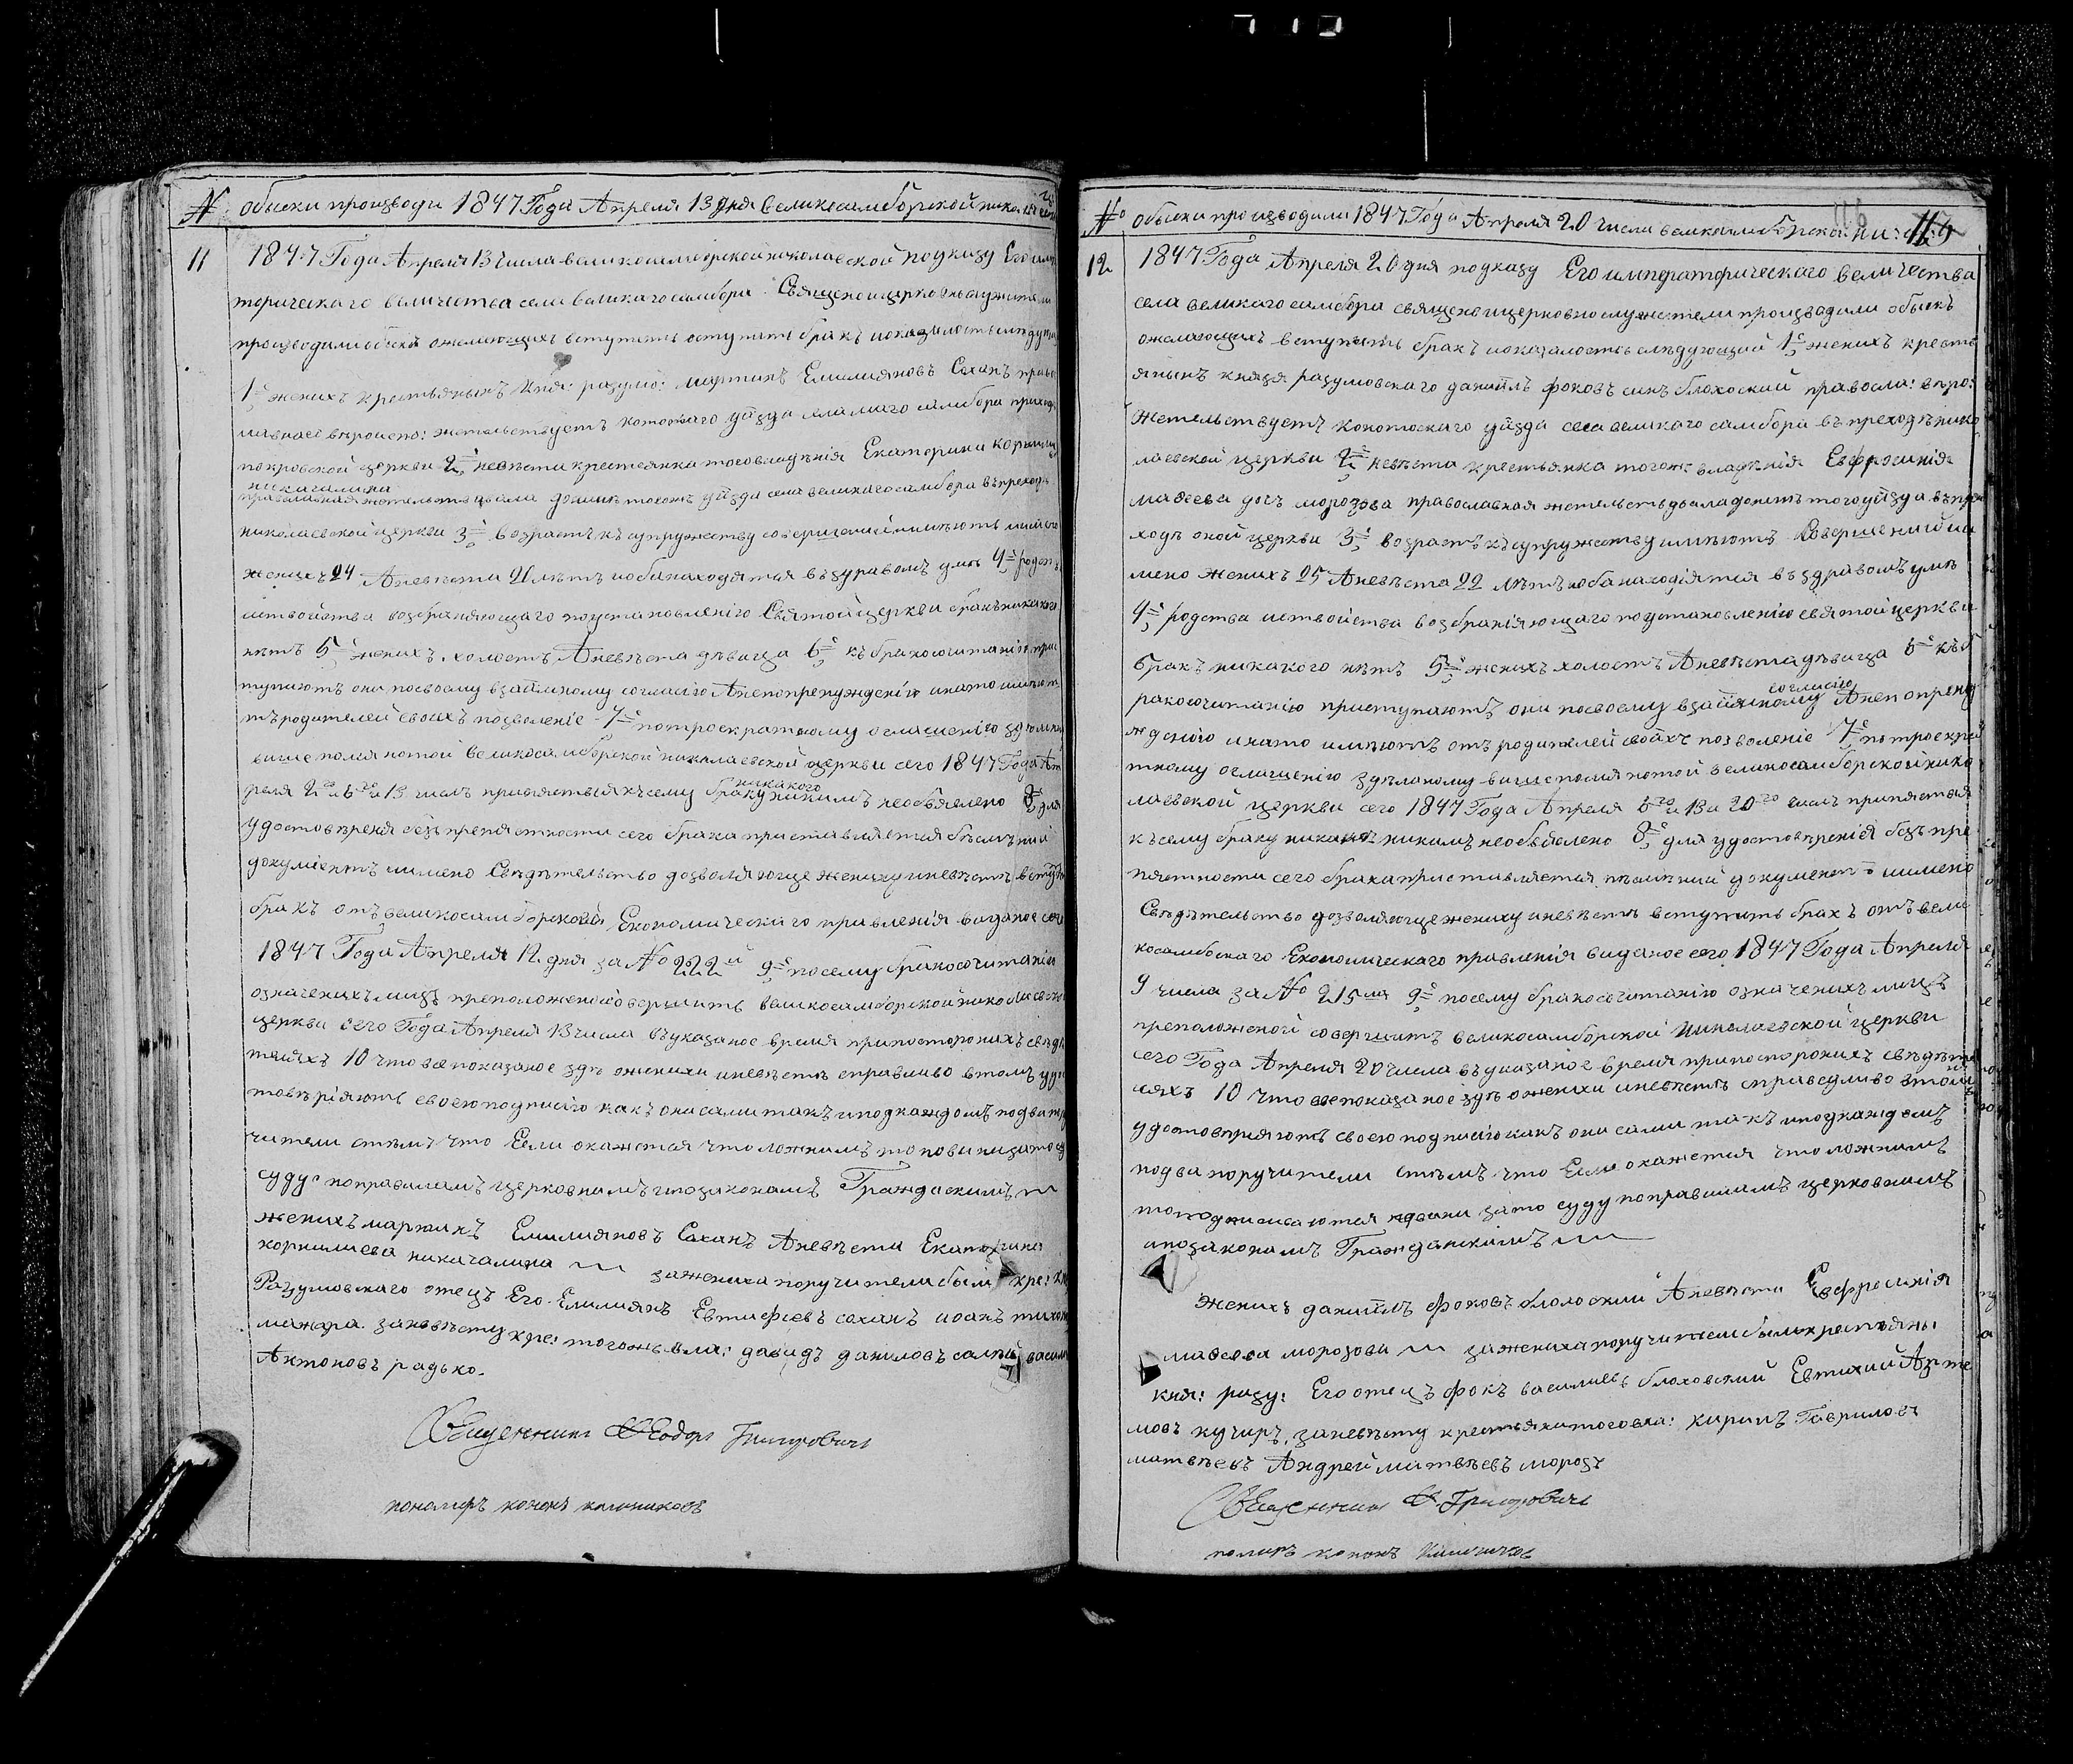 № обыски производи 1847 Года Апреля 13 дня Великосамборской
11
1847 Года Апреля 13 числа великосамборской николаевской по указу Его импе
торическаго величества села великаго самбора Священоицерковнослужители
производили обискъ ожелающихъ вступить вступить бракъ и оказалось следующ
1е женихъ крестьянынъ князя: разумо: мартинъ Емилияновъ Сахан право
славнаго вероиспо: жительствуетъ конотопаго уезда села малаго самбора приход
покровской церкви 2е невеста крестьянка тоговладения Екатерина корнили
никачалина
православная жительствовала донине тогожъ уезда села великаго самбора въ преходе
николаевской церкви 3е возрастъ къ супружеству совершений имеютъ имено
женихъ 24 А невеста 21 летъ и оба находятся въ здравомъ уме 4е родст
исвойства возбраняющаго по установлению Святой церкви бракъ никакого
нетъ 5е женихъ холостъ А невеста девица 6е къ бракосочитанию при
ступаютъ они по своему взаимному согласию А не по принуждению и на то имеют
тъ родителей своихъ позволение 7е по троекратному оглашению зделаному
више помянотой великосамборской николаевской церкви сего 1847 Года Ап
никакого
реля 2го 6го и 13 числъ припятствия къ сему браку никимъ необъявлено 8е для
удостоверения безпрепятности сего брака приставляется писменний
документъ имено Сведетельство дозволяюще жениху и невесте вступить
бракъ отъ великосамборской Економическаго правления виданое сего
1847 Года Апреля 12 дня за № 222й 9е посему бракосочитание
означенихъ лицъ преположено совершить великосамборской николаевской
церкви сего Года Апреля 13 числа въ указаное время при постороннихъ сведе
теляхъ 10 что все показаное зде о женихи и невести справливо в томъ удо
товеряютъ своею подписию какъ они сами такъ и по каждомъ по два пору
чители стемъ что Если окажется что ложнимъ то повини за то су
суду по правиламъ церковнимъ и по законамъ Граждаскимъ
женихъ мартинъ Емилияновъ Саханъ А невеста Екатерина
корнилиева никачалина за жениха поручители были кре: кн
Разумовскаго отецъ Его Емилиянъ Евтифиевъ сахан иоанъ тихо
мажара. за невесту кре: тогожъ вла: давидъ даниловъ васил
Антоновъ радько.
Священникъ Феодоръ Григоровичъ
пономаръ кононъ
№ обыски производили 1847 Года Апреля 20 числа великосамборской ни:
116
12
1847 Года Апреля 20 дня по указу Его императорическаго величества
села великаго самбора священоицерковнослужители производили обыскъ
ожелающихъ вступить бракъ и оказалось следующий 1е женихъ кресть
янынъ князя разумовскаго даниилъ фоковъ синъ блохоский правосла: веро:
жетельствуетъ конотоскаго уезда села великаго самбора въ преходе нико
лаевской церкви 2е невеста крестьянка тогож владения Евфросиния
мавеева дочъ морозова православная жительствовала донинь того уезда въ пре
ходе оной церкви 3е возрастъ къ супружеству имеютъ Совершений
имено женихъ 25 А невеста 22 летъ и оба находятся въ здравомъ уме
4е родства исвойства возбраняющаго по установлению святой церкви
бракъ никакого нетъ 5е женихъ холостъ А невеста девица 6е къ б
согласию
ракосочитанию приступаютъ они по своему взаимному А не по прену
ждению и на то имеютъ отъ родителей своихъ позволение 7е по троекра
тному оглашению зделаному више помянотой великосамборской нико
лаевской церкви сего 1847 Года Апреля 6го и 13 и 20го числъ припяствия
къ сему браку никимъ необъявлено 8е для удостоверения безъ пре
пятности сего брака приставляется писменний документъ имено
Сведетельство дозволяюще жениху и невесте вступить бракъ отъ вели
косамбоскаго Економическаго правления виданое сего 1847 Года Апреля
9 числа за № 215мъ 9е посему бракосочитанию означенихъ лицъ
преположеной совершить великосамборской николаевской церкви
сего Года Апреля 20 числа въ указаное время при посторонихъ сведете
ляхъ 10 что все показаное зде о женихи и невести справедливо в томъ
удостоверяютъ своею подписию какъ они сами такъ и по каждомъ
по два поручители стемъ что Если окажется что ложнимъ
то подписиваются повини за то суду по правиламъ церковнимъ
и по законамъ Гражданскимъ
женихъ даниилъ фоковъ блоховский А невеста Евфросиния
мавеева морозова за жениха поручители были крестьяны
кня: разу: Его отецъ фокъ василиевъ блоховский Евтихий Арте
мовъ кучиръ, за невесту крестьяни тоговла: кирилъ Гавриловъ
матвеевъ Андрей матвеевъ морозъ
Священникъ Ф. Григоровичъ
помаръ кононъ